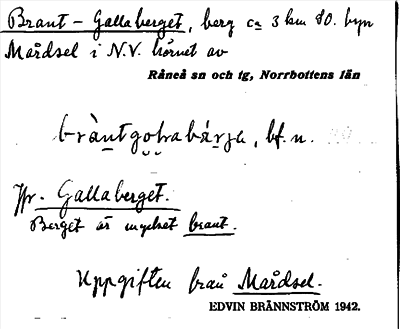 Brant - Gallaberget, berg ca 3 km SO. byn
Mårdsel i N.V. hörnet av
Råneå sn och tg, Norrbottens län
bràntgo̯ḷabárja, bf. n.
Jfr. Gallaberget.
Berget är mycket brant.
Uppgiften från Mårdsel.
EDVIN BRÄNNSTRÖM 1942.